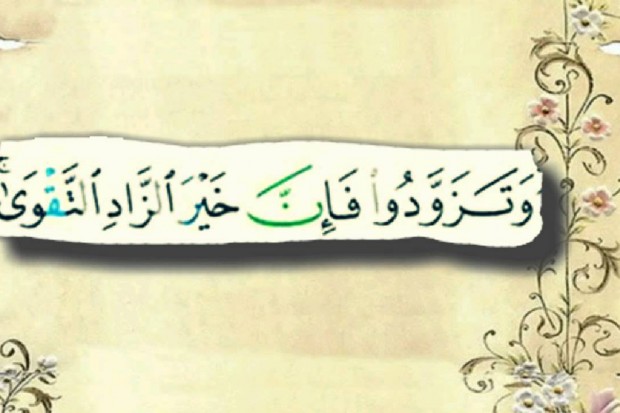 وَتَزَوَّدُوا۟ فَإِنَّ خَيْرَ ٱلزَّادِ ٱلتَّقْوَىٰ ۚ